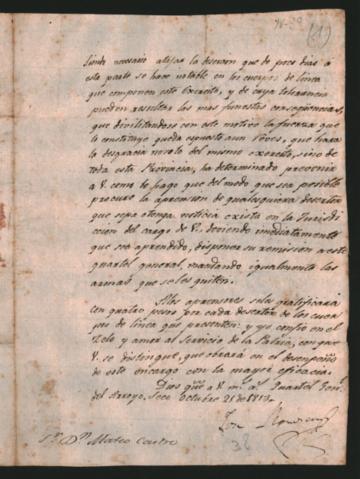 (1)
Siendo necesario atajar la desercion que de poco dias a
esta parte se hace notable en los cuerpos de linea
que componen este Exercito, y de cuya tolerancia
pueden resultar las mas funestas conseqüencias,
que divilitandose con este motivo la fuerza que
lo constituye queda expuesto a un reves, que hara
la desgracia no solo del mismo exercito, sino de
toda esta Provincia, ha determinado prevenir
a V. como lo hago que del modo que sea posible
procure la aprension de qualesquiera desertor
que sepa o tenga noticia exista en la Jurisdi
cion del cargo de V. deviendo imediatamente
que sea aprendido, disponer su remision a este
quartel general, mandando igualmente las
armas que se les quiten.
A los aprensores se les gratificará
con quatro pesos por cada desertor de los cuer
pos de linea que presenten: y yo confio en el
zelo y amor al Servicio de la Patria, con que
V. se distingue, que obrará en el desempeño
de este encargo con la mayor eficacia.
Dios gûe a V. m.s a.s Quartel Gen.l
del Arroyo Seco Octubre 21 de 1812.
Jose Rondeau
38
S.r D.n Mateo Castro